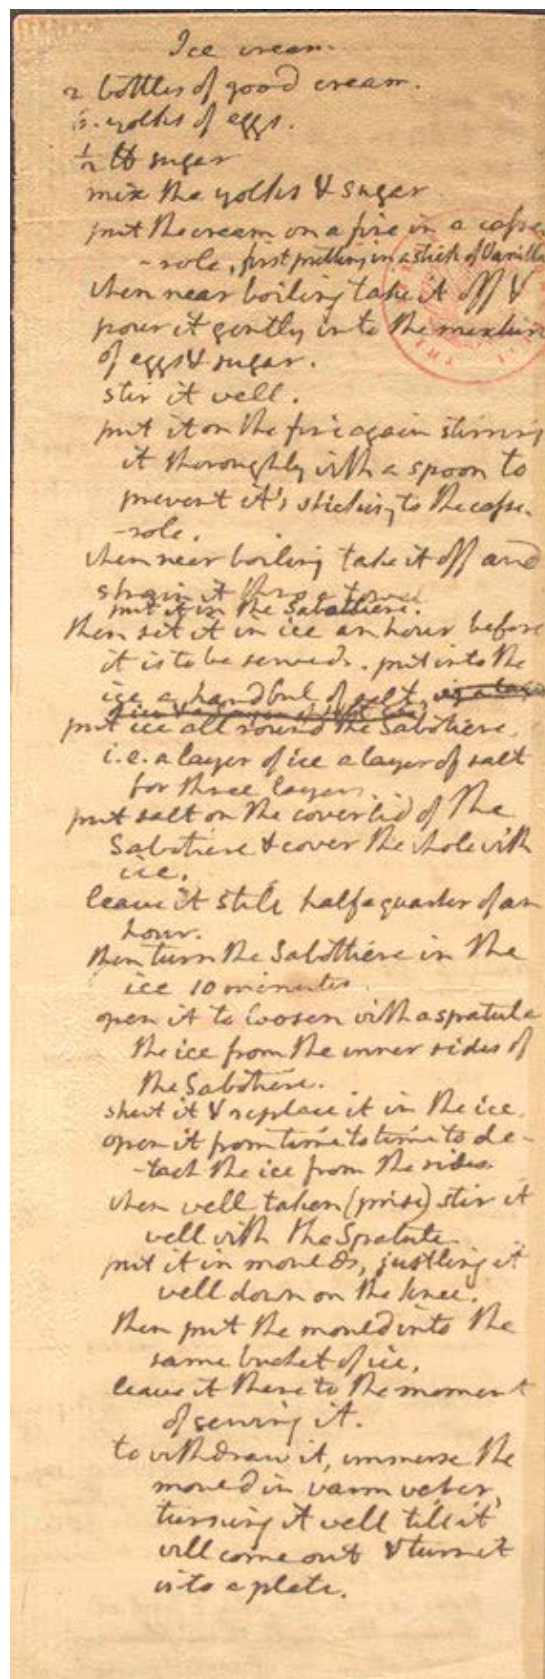 Ice cream.
2 bottles of good cream.
6. yolks of eggs.
1/2 ℔ sugar
mix the yolks & sugar
put the cream on a fire in a casse-
-role, first putting in a stick of Vanilla.
when near boiling take it off &
pour it gently into the mixture
of eggs & sugar.
stir it well.
put it on the fire again stirring
it thoroughly with a spoon to
prevent it's sticking to the casse-
-role.
when near boiling take it off and
strain it thro' a towel.
put it in the Sabottiere.
then set it in ice an hour before
it is to be served. put into the
ice a handful of salt.
put ice all round the Sabotiere
i.e. a layer of ice a layer of salt
for three layers.
put salt on the coverlid of the
Sabotiere & cover the whole with
ice.
leave it still half a quarter of an
hour.
then turn the Sabottiere in the
ice 10 minutes
open it to loosen with a spatula
the ice from the inner sides of
the Sabotiere.
shut it & replace it in the ice
open it from time to time to de-
-tach the ice from the sides
when well taken (prise) stir it
well with the Spatula.
put it in moulds, justling it
well down on the knee.
then put the mould into the
same bucket of ice.
leave it there to the moment
of serving it.
to withdraw it, immerse the
mould in warm water,
turning it well till it
will come out & turn it
into a plate.